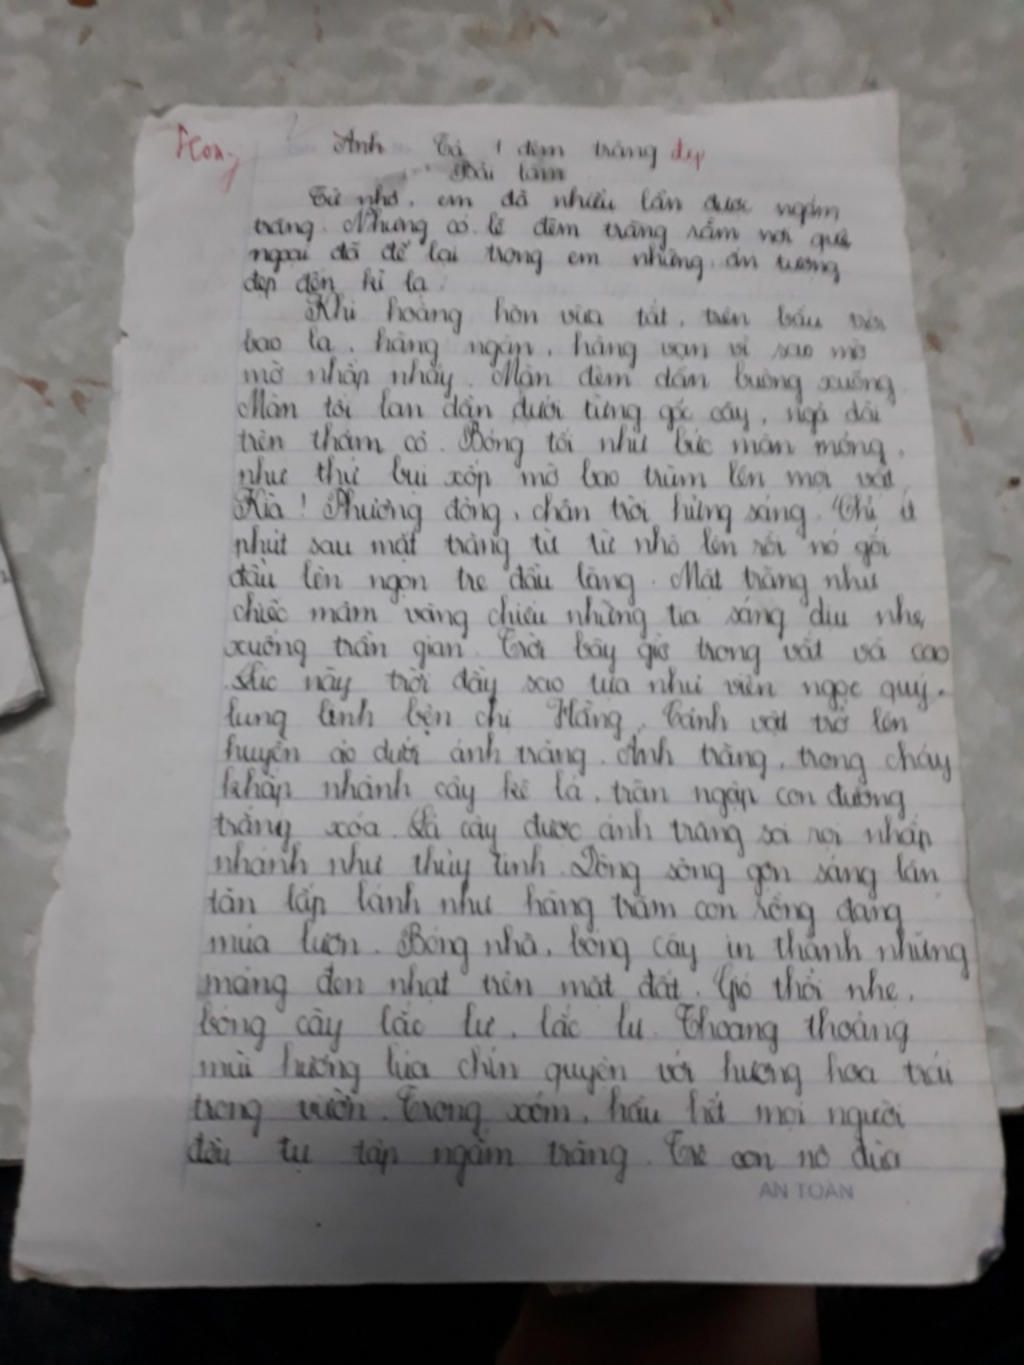 Anh Tả 1 đêm trăng đẹp
Bài làm
Từ nhỏ, em đã nhiều lần được ngắm
trăng. Nhưng có lẽ đêm trăng rằm nơi quê
ngoại đã để lại trong em những ấn tượng
đẹp đến kì lạ.
Khi hoàng hôn vừa tắt, trên bầu trời
bao la, hàng ngàn, hàng vạn vì sao mờ
mờ nhấp nháy. Màn đêm dần buông xuống.
Màn tối lan dần dưới từng gốc cây, ngả dài
trên thảm cỏ. Bóng tối như bức màn mỏng,
như thứ bụi xốp mờ bao trùm lên mọi vật.
Kìa! Phương đông, chân trời hửng sáng. Chỉ ít
phút sau mặt trăng từ từ nhô lên rồi nó gối
đầu lên ngọn tre đầu làng. Mặt trăng như
chiếc mâm vàng chiếu những tia sáng dịu nhẹ
xuống trần gian. Trời bây giờ trong vắt và cao
Lúc này trời đầy sao tựa như viên ngọc quý.
lung linh bên chị Hằng. Cảnh vật trở lên
huyền ảo dưới ánh trăng. Ánh trăng, trong chảy
khắp nhành cây kẽ lá, tràn ngập con đường
trắng xóa. Lá cây được ánh trăng soi rọi nhấp
nhánh như thủy tinh. Dòng sông gợn sáng lăn
tăn lấp lánh như hàng trăm con rồng đang
múa lượn. Bóng nhà, bóng cây in thành những
mảng đen nhạt trên mặt đất. Gió thổi nhẹ,
bóng cây lắc lư, lắc lư. Thoang thoảng
mùi hương lúa chín quyện với hương hoa trái
trong vườn. Trong xóm, hầu hết mọi người
đều tụ tập ngắm trăng. Trẻ con nô đùa
AN TOÀN